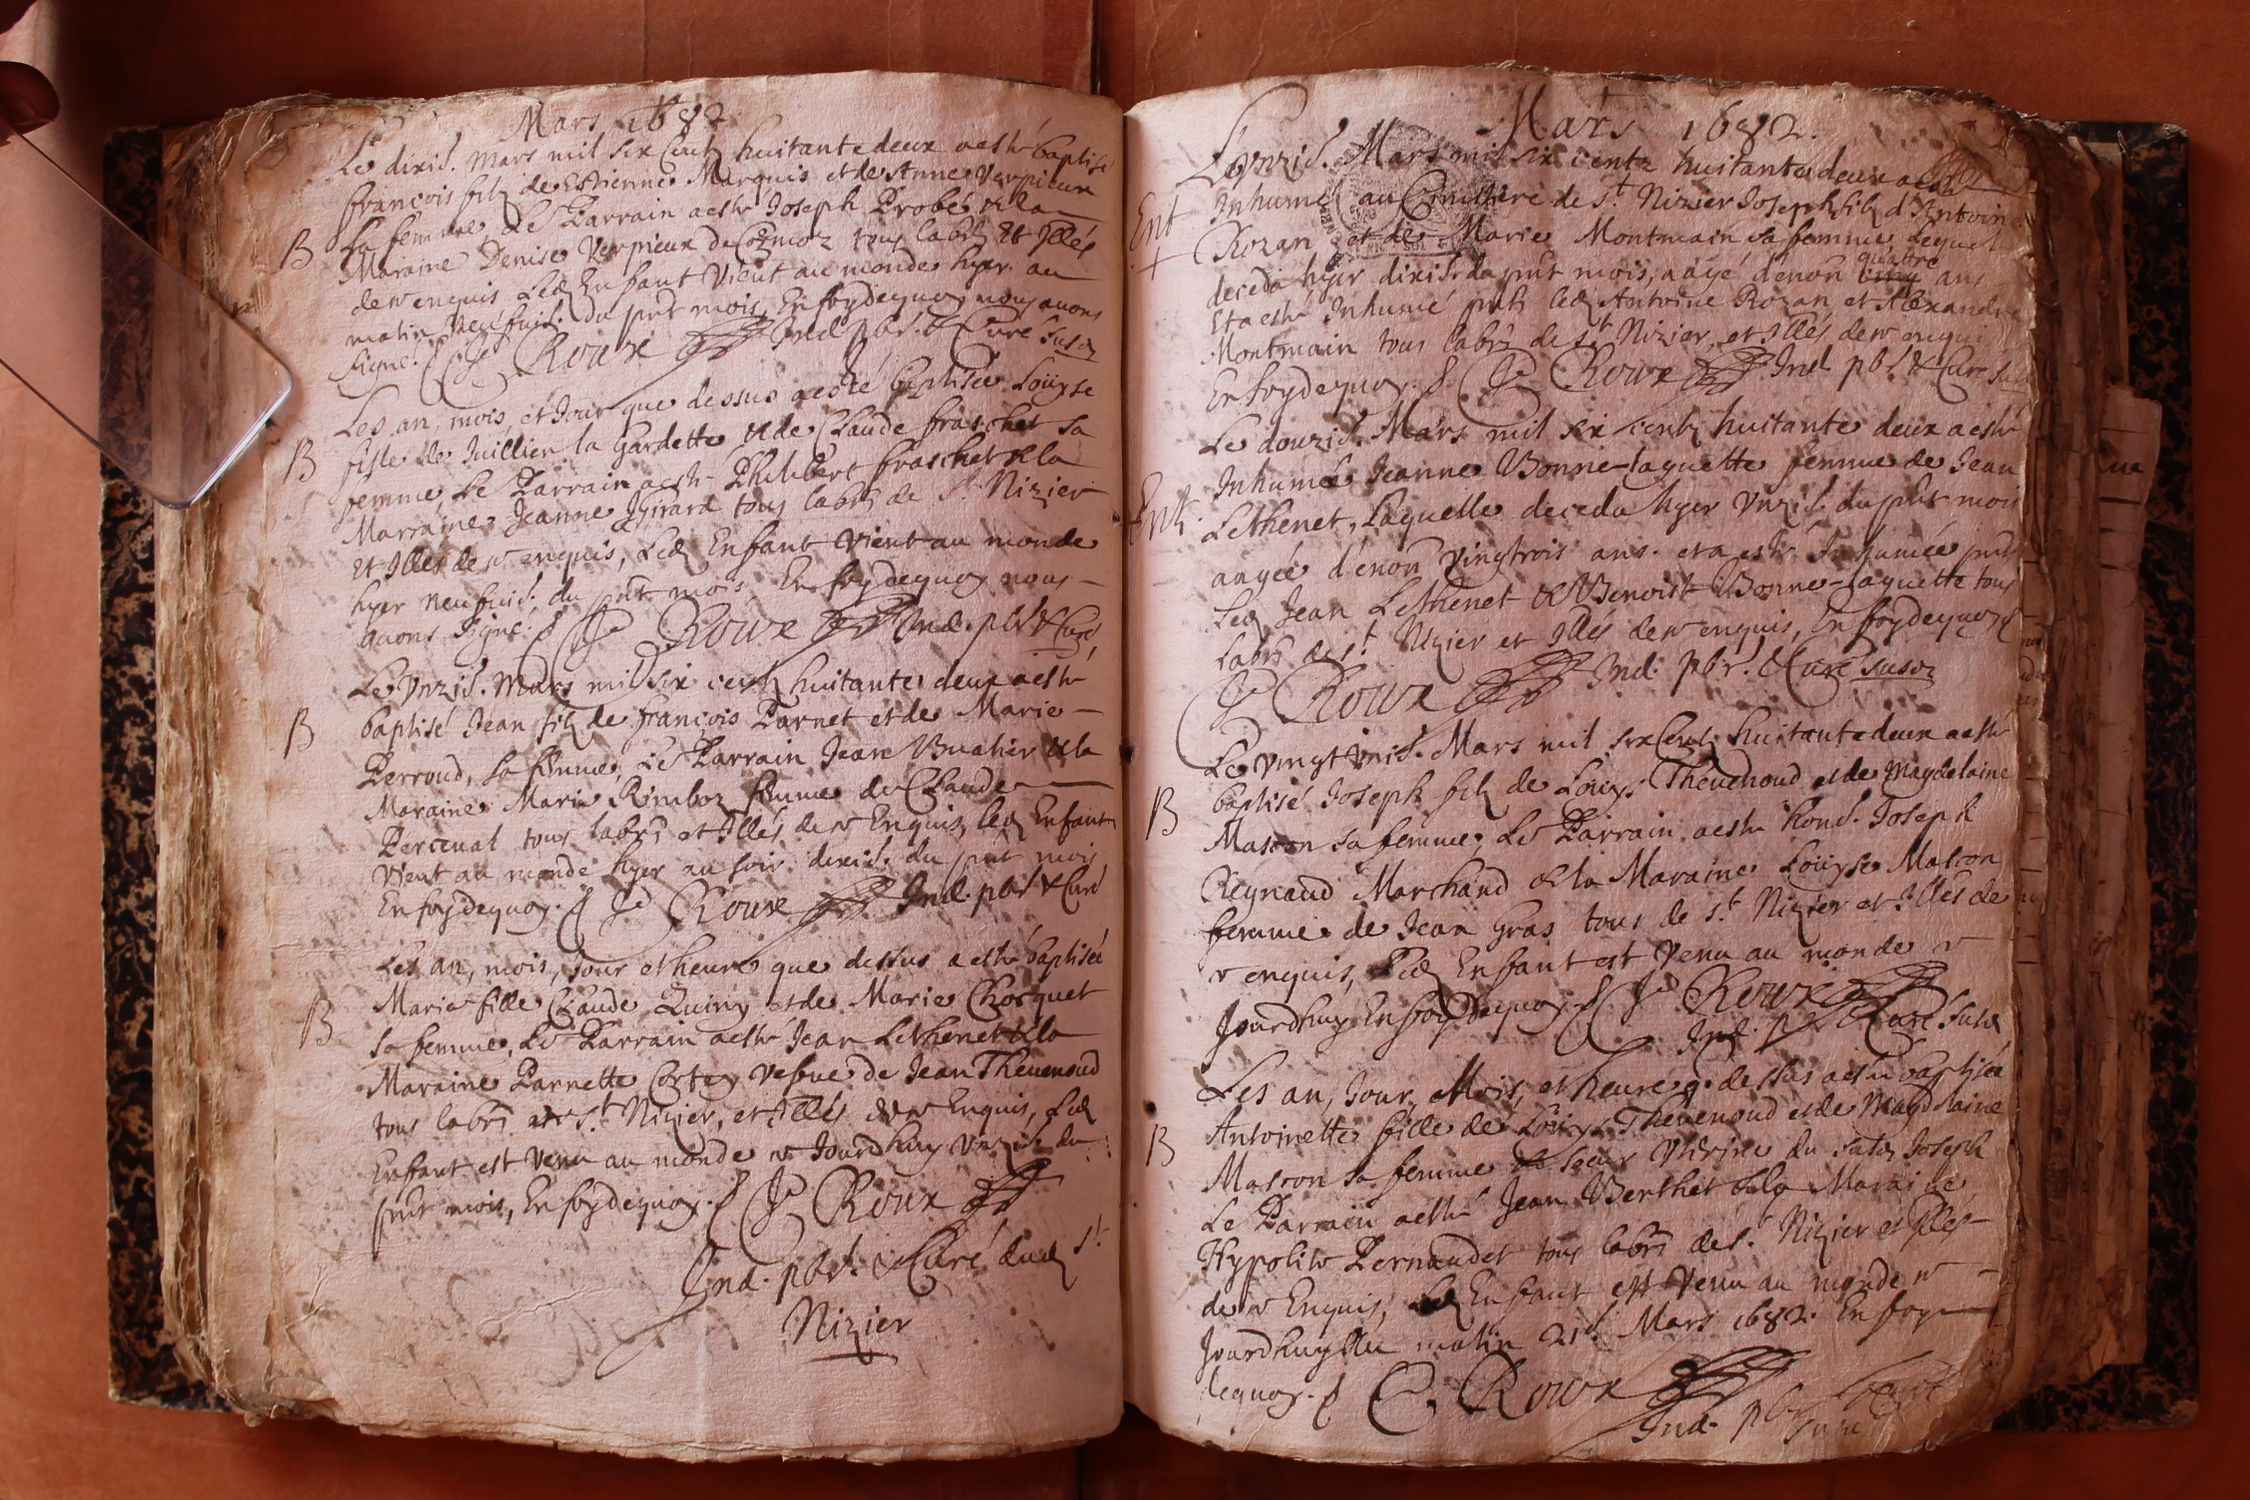 Mars 1682
Le dixie. Mars mil six Centz huitante deux aesté baptisé
françois filz de Estienne Marquis et de Anne Verpieux
sa femme Le Parrain aesté Joseph Probé & la
B
Maraine Denise Verpieux de tous labrs Et Illés
de ce enquis Led Enfant Vient au monde hyer au
matin Neufuie. du pnt mois, En foydequoy nous avons
signé. Je Roux Ind. pbr. & Curé susd
Les an, mois, et Jour que dessus aesté baptisée Loüyse
B
fille de Juillien la Gardette et de Claude fraschet sa
femme Le Parrain aesté Philibert fraschet & la
Marraine Jeanne Girard tous labrs de St. Nizier
Et Illés de ce enquis, Led Enfant Vient au monde
hyer neufuie. du pnt mois, En foydequoy nous
avons signé. Je Roux Ind. pbr & Curé
Le Vnzie. Mars mil six centz huitante deux aesté
B
baptisé Jean filz de françois Parnet et de Marie
Perroud, sa femme, Le Parrain Jean Buatier & la
Maraine Marie femme de Claude
Perceual tous labrs et Illés de ce Enquis, led Enfant
Vient au monde hyer au soir dixie. du pnt mois
En foydequoy. Je Roux Ind. pbr & Curé
Les an, mois, jour et heure que dessus aesté baptisée
B
Marie fille Claude Quiny et de Marie Chosquet
sa femme, Le Parrain aesté Jean Lethenet & la
Maraine Parnette Cortey Vefue de Jean Theuenoud
tous labrs de St. Nizier, et Illés de ce Enquis, Led
Enfant est Venu au monde ce Jourdhuy Vnzie. du
pnt mois, En foydequoy. Je Roux
Ind. pbr. & Curé dud St
Nizier
Mars 1682.
Le Vnzie. Mars mil six centz huitante deux aesté
Ent
Inhumé au Cimitiere de St. Nizier Joseph filz d'Antoine
Rozan et de Marie Montmain sa femme Lequel
quattre
deceda hyer dixie. du pnt mois, aagé d'enon cinq ans
Et aesté Inhumé pnts led Antoine Rozan et Alexandre
Montmain tous labrs de St Nizier, et Illés de ce enquis
En foydequoy. Je Roux Ind. pbr & Curé
Le douzie. Mars mil six centz huitante deux aesté
Ent.
Inhumée Jeanne Bonne-laquette femme de Jean
Lethenet, Laquelle deceda hyer Vnzie. du pnt mois
aagée d'enon Vingtrois ans. et a esté Inhumée pnts
Led Jean Lethenet & Benoist Bonne-laquette tous
labrs de St Nizier et Illés de ce enquis, En foydequoy
Je Roux Ind. pbr. & Curé susd
Le Vingt Vnie. Mars mil six Centz huitante deux aesté
B
baptisé Joseph filz de Loüys Theuenoud et de Magdelaine
Masson sa femme, Le Parrain aesté hond. Joseph
Reynaud Marchand & la Maraine Loüyse Masson
femme de Jean Gras tous de St. Nizier et Illés de
ce enquis, Led Enfant est Venu au monde ce
Jourdhuy En foydequoy Je Roux
Ind. pbr & Curé susd
Les an, Jour, Mois, et heure q. dessus aesté baptisée
B
Antoinette fille de Loüys Theuenoud et de Magdelaine
Masson sa femme soeur Vtérine du susd Joseph
Le Parrain aesté Jean Berthet & la Maraine
Hypolite Pernaudet tous labrs de St. Nizier et Illés
de ce Enquis, Led Enfant est Venu au monde ce
Jourdhuy Au matin 21e. Mars 1682. En foy
dequoy. C. Roux
Ind. pbr Curé